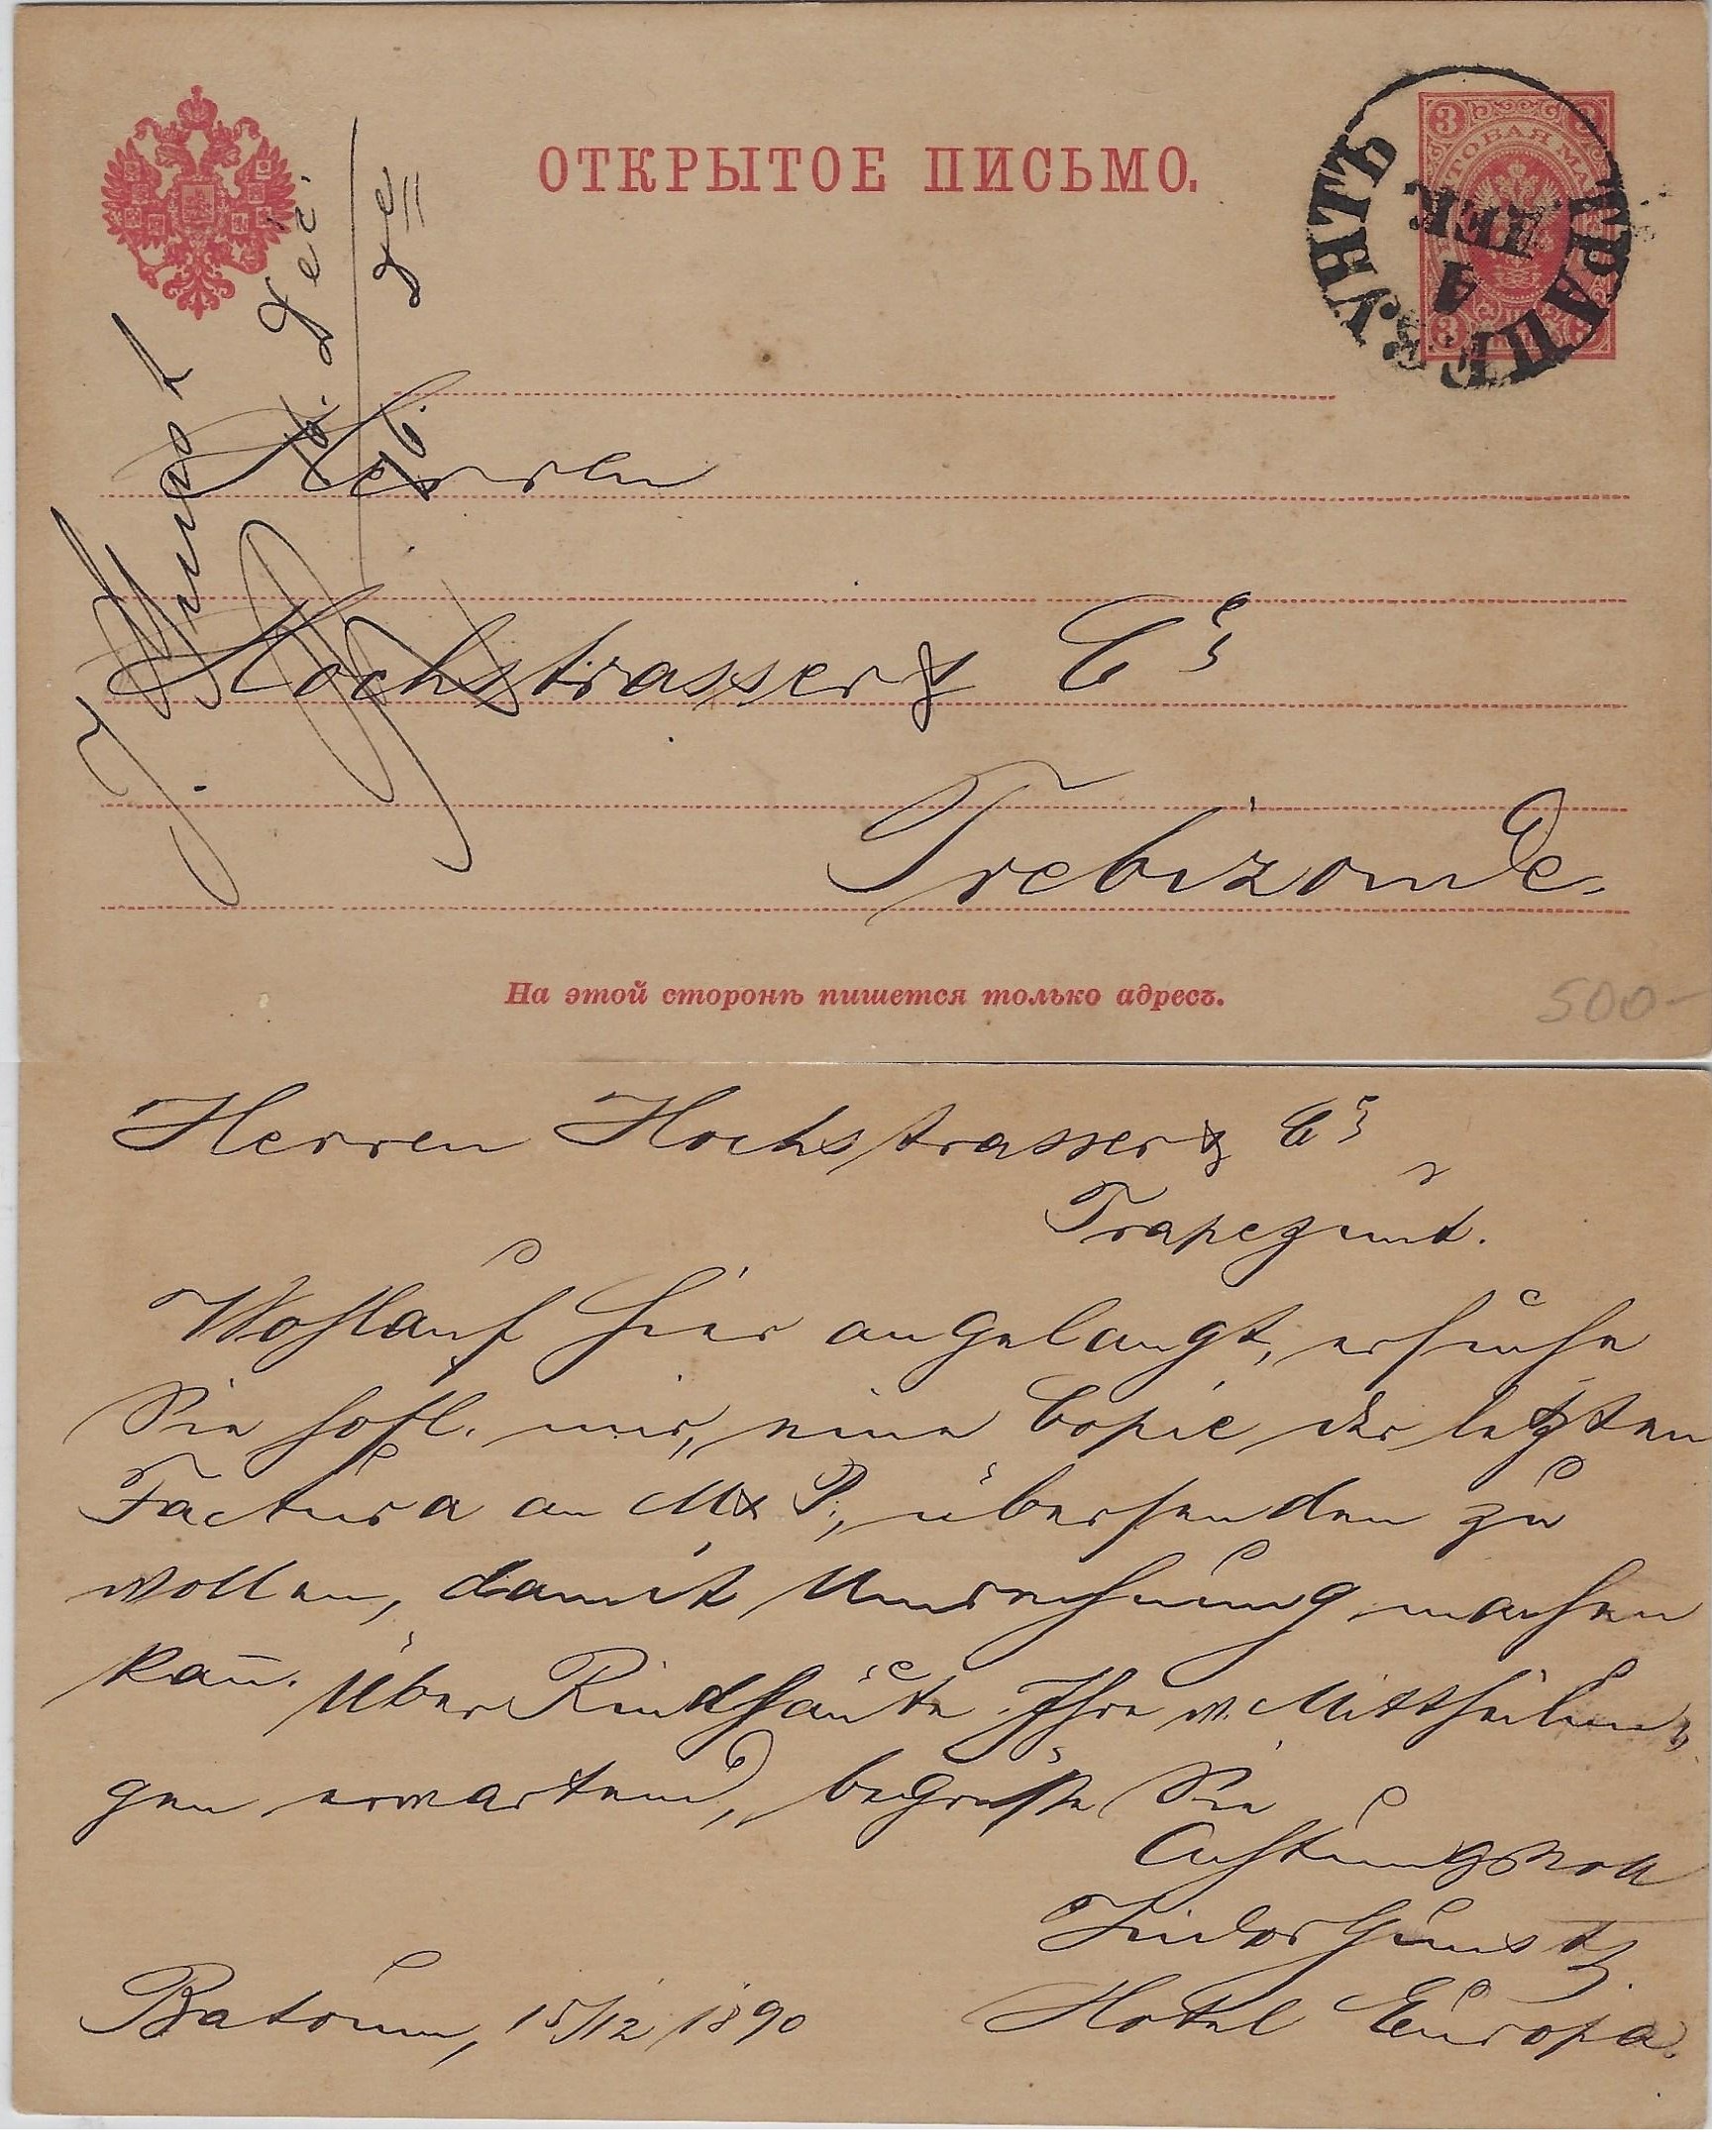 ОТКРЫТОЕ ПИСЬМО.
3 3
ПОЧТОВАЯ МАРКА
3 3
ТРАПЕЗУНТЪ
4 ДЕК
16. Dec.
16. de
Herren
Hochstrasser & Cº
Trebizonde.
На этой сторонѣ пишется только адресъ.
500-
Herren Hochstrasser & Cº,
Trapezunt.
Wohlauf hier angelangt, ersuche
Sie höfl. mir, eine Copie der letzten
Factura an M & P., übersenden zu
wollen, damit Umrechnung machen
kann̄. Über Rindshäute Ihre w. Mittheilun-
gen erwartend, begrüße Sie
Achtungsvoll
Isidor Kunst
Hotel Europa.
Batoum, 15/12 1890